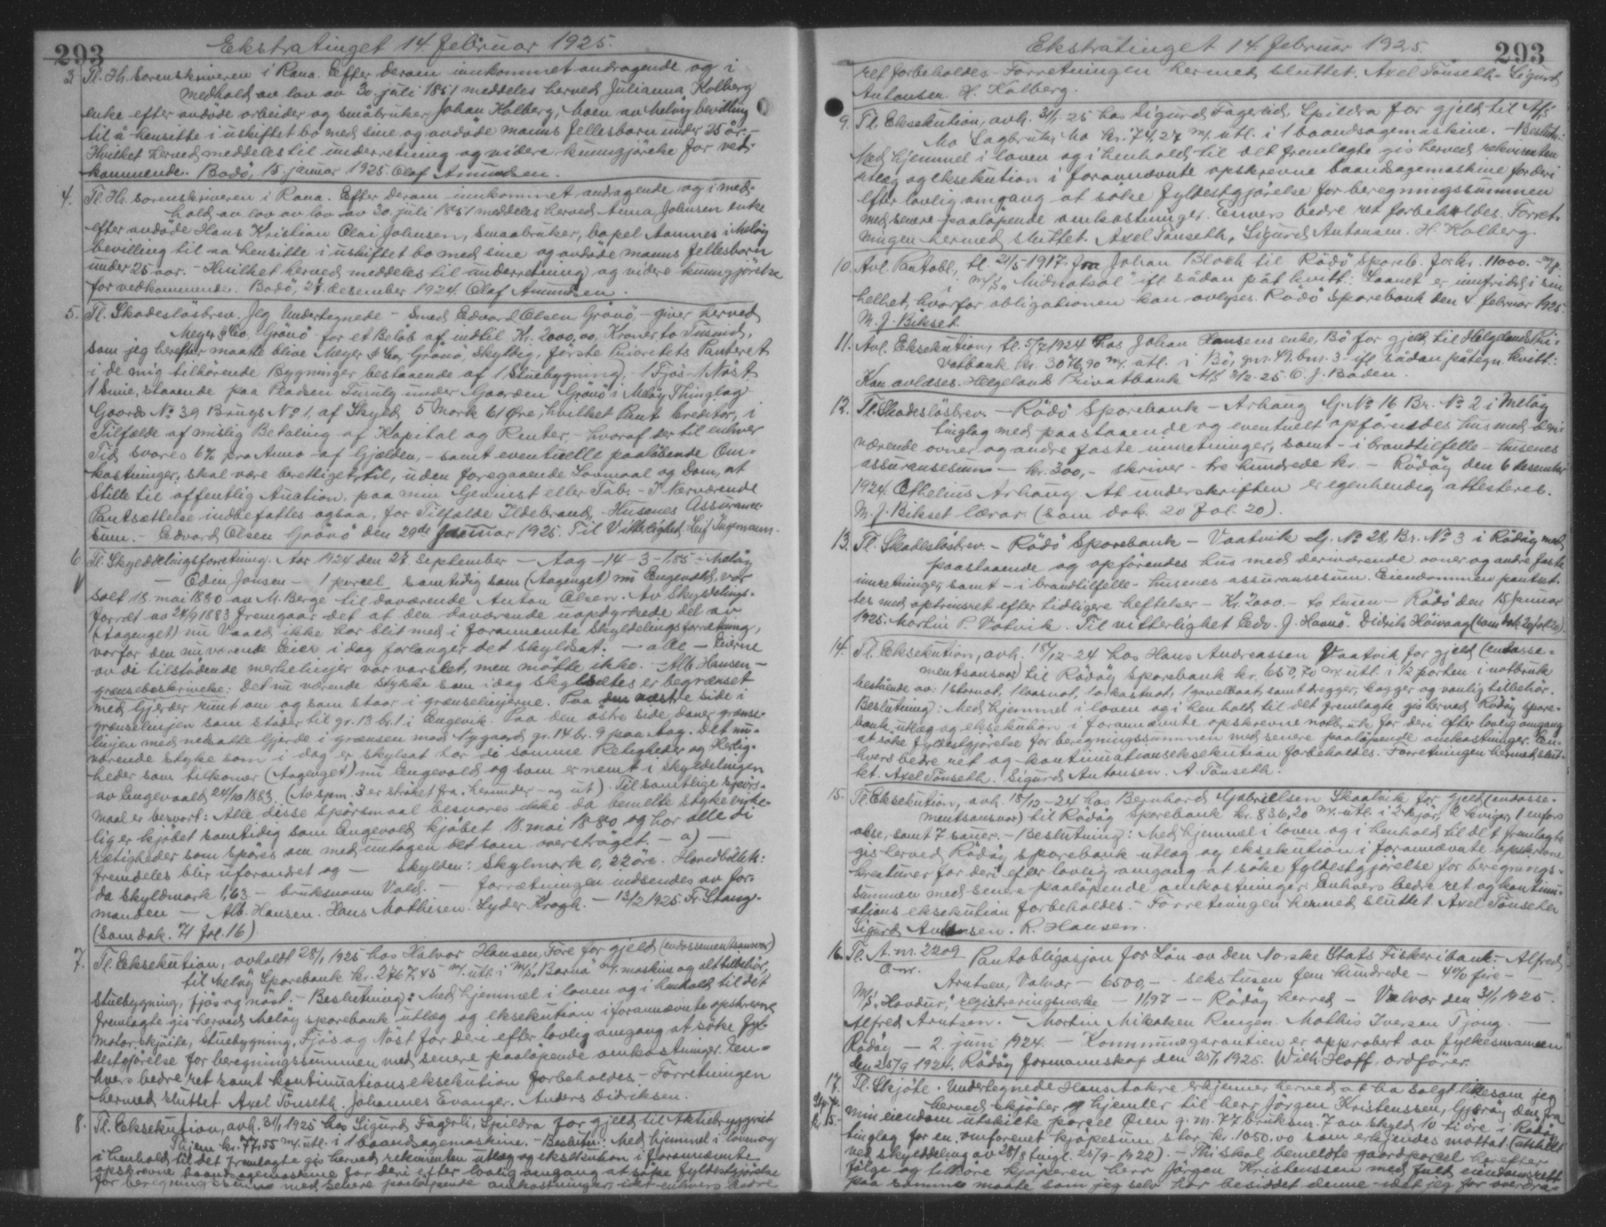 293
Ekstratinget 14. februar 1925.
3 Tl. Hr. Sorenskriveren i Rana. Efter derom innkommet andragende og i
medhold av lov av 30. juli 1851 meddeles herved Julianna Kolberg
enke efter avdøde arbeider og småbruker Johan Kolberg, Moen av Meløy bevilling
til å hensitte i uskiftet bo med sine og avdøde manns fellesbarn under 25 år.-
Hvilket herved meddeles til underretning og videre kunngjørelse for ved-
kommende. Bodø, 15. januar 1925. Olaf Amundsen.
4. Tl. Hr. sorenskriveren i Rana. Efter derom innkommet andragende og i med-
hold av lov av lov av 30. juli 1851 meddeles herved Anna Johnsen enke
efter avdøde Hans Kristian Olai Johnsen, smaabruker, bopel Aamnes i Meløy
bevilling til aa hensitte i uskiftet bo med sine og avdøde manns fellesbarn
under 25 aar. - Hvilket herved meddeles til underretning og videre kunngjørelse
for vedkommende. Bodø, 27. desember 1924 Olaf Amundsen.
5. Tl. Skadesløsbrev. Jeg Undertegnede - Smed Edvard Olsen Grønø - giver herved
Meyer & Co. Grønø for et Beløb af indtil Kr. 2000,00 Kroner to Tusind,
som jeg herefter maatte blive Meyer & Co, Grønø, skyldig, første Prioritets Panteret
i de mig tilhørende Bygninger bestaaende af 1 Stuebygning, 1 Fjøs 1 Nøst
1 Smie, staaende paa Pladsen under Gaarden Grønø i Meløy Thinglag
Gaards No 39 Brugs No 1 af Skyld 5 Mark 61 Øre, hvilket Pant Creditor, i
Tilfælde af mislig Betaling af Kapital og Renter, hvoraf der til enhver
Tid svares 6% pro Anno af Gjelden, - samt eventuelle paaløbende Om-
kostninger, skal være berettiget til, uden foregaaende Søgsmaal og Dom, at
stille til offentlig Auction, paa min Gevinst eller Tab. - I Nærværende
Pantsættelse indbefattes ogsaa, for Tilfælde Ildebrand, Husenes Assurance-
sum. - Edvard Olsen Grønø den 29de Januar 1925. Til Vitterlighed Leif Ingmann.
6. Tl. Skylddelingsforretning. Aar 1924 den 27. september - Aag - 14 - 3 - 1.85 - Meløy
- Oden Jensen - 1 parcel, samtidig som (Aagenget) nu Engevold, var
solt 18 mai 1880 av M. Berge til daværende Anton Olsen. Av skyldelings-
forret av 24/9 1883 fremgaar det at den daværende uopdyrkede del av
(Aagenget) nu Vaad ikke har blit med i forannævnte skyldelingsforretning,
vorfor den nu værende Eier i dag forlanger det skyldsat. - alle - Eierne
av de tilstødende merkelinjer var varslet, men møtte ikke. - Alb. Hansen -
grænsebeskrivelse: Det nu værende stykke som i dag skyldsættes er begrænset
med gjerder rundt om og som staar i grænselinjerne. Paa den næste side i
grænselinjen som støder til gr. 13 br. 1 i Engevik. Paa den østre side, daner grænse-
linjen med nedsatte gjerde i grænsen mod Nygaard gr. 14 br. 9 paa Aag. Det nu-
værende stykke som i dag er skylsat har de samme Rettigheder og Herlig-
heder som tilkomer (Aagenget) nu Engevold og som er nemt i skyldelingen
av Engevaald 24/10 1883. (Av spm. 3 er strøket fra: herunder - og ut) Til samtlige spørs-
maal er besvart: Alle disse spørsmaal besvares ikke da bemelte styke virke-
lig er kjøbet samtidig som Engevold kjøbet 18. mai 1880 og har alle de
rætigheder som spøres om med untagen det som overstrøget. - a) -
fremdeles blir uforandret og - skylden: skylmark 0,22 øre. Hovedbølets:
da skyldmark 1,63 - bruksnavn Vald. - forrætningen indsendes av for-
manden - Alb. Hansen. Hans Mathisen. Lyder Krogh. - 13/2 1925 Fr. Stang.
(Som dok. 71 fol. 16)
7. Tl. Eksekution, avholdt 28/1 1925 hos Halvor Hansen, Føre for gjeld (endossementsansvar)
til Meløy Sparebank kr. 2767,45 m/ utl. i m/s "Baana" m/ maskine og alt tilbehør,
stuebygning, fjøs og nøst. - Beslutning: Med hjemmel i loven og i henhold til det
fremlagte gis herved Meløy sparebank utlæg og eksekution i forannævnte opskrevne
motorskjøite, stuebygning, Fjøs og Nøst for deri efter lovlig omgang at søke fyl-
destgjørelse for beregningssummen med senere paaløpende omkostninger. En-
hvers bedre ret samt kontinuationseksekution forbeholdes. - Forretningen
hermed sluttet Axel Tønseth. Johannes Evanger. Anders Didriksen.
8. Tl. Eksekution, avh. 31/1 1925 hos Sigurd Fagerli, Spildra for gjeld til Aktiebryggeriet
Triem kr. 77.55 m/ utl. i 1 baandsagemaskine. - Beslutn: Med hjemmel i loven og
i henhold til det fremlagte gis herved rekvirenten utlæg og eksekution i forannævnte
opskrevne baandsagemaskine for deri efter lovlig omgang at søke fyldestgjørelse
for beregningssummen med senere paaløpende omkostninger, idet enhvers bedre
Ekstratinget 14. februar 1925.
293
ret forbeholdes. Forretningen hermed sluttet. Axel Tønseth. Sigurd
Antonsen. H. Kolberg.
9. Tl. Eksekution, avh. 31/1 25 hos Sigurd Fagerli, Spildra for gjeld til A/S
Mo Sagbruk, Mo kr. 74,27 m/ utl. i 1 baandsagemaskine. - Beslutn:
Med hjemmel i loven og i henhold til det fremlagte gis herved rekvirenten
utlæg og eksekution i forannævnte opskrevne baandsagemaskine for deri
efter lovlig omgang at søke fyldestgjørelse for beregningssummen
med senere paaløpende omkostninger. Enhvers bedre ret forbeholdes. Forret-
ningen hermed sluttet. Axel Tønseth, Sigurd Antonsen. H. Kolberg.
10. Avl. Pantobl, tl. 21/5-1917 fra Johan Blokh til Rødø Spareb. for kr. 11000.- m/p
i m/s "Midnatsol" ift. sådan påt. kvitt: Laanet er innfridd i sin
helhet, hvorfor obligationen kan avlyses. Rødø Sparebank den 4 februar 1925.
M. J. Bikset.
11. Avl. Eksekution, tl. 5/7 1924 hos Johan Hansens enke, Bø for gjeld til Helgelands Pri-
vatbank kr. 3076,90 m/ utl. i Bø, gnr. 49. bnr. 3 ift. sådan påtegn. kvitt:
Kan avlæses. Helgeland Privatbank A/S 3/2-25 C. J. Baden.
12. Tl. Skadesløsbrev. - Rødø Sparebank - Arhaug G. No 16 Br. No 2 i Meløy
tinglag med paastaaende og eventuelt opførendes hus med deri-
værende ovner og andre faste innretninger, samt - i brandtilfelle - husenes
assuransesum - kr. 300,- skriver - tre hundrede kr. - Rødøy den 6 desember
1924. Othelius Arhaug. At underskriften er egenhendig attesteres.
M. J. Bikset lærar. (Som dok. 20 fol. 20).
13. Tl. Skadesløsbrev. - Rødø Sparebank - Vaatvik G. No 28, Br. No 3 i Rødøy med
paastaaende og opførendes hus med deriværende ovner og andre faste
innretninger samt - i brandtilfelle - husenes assuransesum. Eiendommen pantset-
tes med optrinsret efter tidligere heftelser - Kr. 2000.- to tusen - Rødø den 15 januar
1925. Martin P. Vatvik. Til vitterlighet Edv. J. Havnø. Didrik Høivaag (som dok 20 fol 20).
14. Tl. Eksekution, avh. 18/12-24 hos Hans Andreassen Vaatvik for gjeld (endosse-
mentsansvar) til Rødøy Sparebank kr. 650,70 m/ utl. i 1/2 parten i notbruk
bestående av: 1 stornot, 1 lasnot, 1 orkastnot, 1 gavelbaat, samt dregger, kagger og vanlig tilbehør.
Beslutning: Med hjemmel i loven og i henhold til det fremlagte gis herved Rødøy spare-
bank utlæg og eksekution i forannævnte opskrevne notbruk for deri efter lovlig omgang
at søke fyldestgjørelse for beregningssummen med senere paaløpende omkostninger. En-
hvers bedre ret og kontinuationseksekution forbeholdes. Forretningen hermed slut-
tet. Axel Tønseth. Sigurd Antonsen. A. Tønseth.
15. Tl. Eksekution, avh. 18/12-24 hos Bernhard Gabrielsen Skaalvik for gjeld (endosse-
mentsansvar) til Rødøy Sparebank kr. 836,20 m/ utl. i 2 kjør, 2 kviger, 1 ungs
okse, samt 7 sauer. - Beslutning: Med hjemmel i loven og i henhold til det fremlagte
gis herved Rødøy sparebank utlæg og eksekution i forannævnte opskrevne
kreaturer for deri efter lovlig omgang at søke fyldestgjørelse for beregnings-
summen med senere paaløpende omkostninger. Enhvers bedre ret og kontinu-
ations eksekution forbeholdes. - Forretningen hermed sluttet Axel Tønseth
Sigurd Antonsen. R. Hansen.
16. Tl. A. nr. 2209 Pantobligasjon for Lån av den Norske Stats Fiskeribank: - Alfred
O-nr.
Arntsen, Valvær - 6500,- - seks tusen fem hundrede - 4% fire -
M/s "Havdur", registreringsmerke - 11,97 - - Rødøy herred - Valvær den 31/1 1925.
Alfred Arntsen. - Martin Mikalsen Rengen. Mathis Iversen Tjong. -
Rødøy - 2. juni 1924. - Kommunegarantien er approbert av fylkesmannen
den 25/9 1924. Rødøy formannskap den 25/1 1925. Wilh. Hoff, ordfører.
17. Tl. Skjøte. Undertegnede Hans Aakre erkjenner herved at ha solgt likesom jeg
herved skjøter og hjemler til herr Jørgen Kristenssen, Gjerøy den fra
min eiendom utskilte parcel Øien g. nr. 77 bruksnr. 7 av skyld 10 ti øre i Rødøy
tinglag for en omforenet kjøpesum stor kr. 1050.00 som erkjendes mottat (utskilt
ved skylddeling av 28/8 tingl. 25/9-1922). - Thi skal bemeldte gaardparcel herefter
følge og tilhøre kjøperen herr Jørgen Kristenssen med fuld eiendomsrett
paa samme maate som jeg selv har besiddet denne idet jeg for overdra-